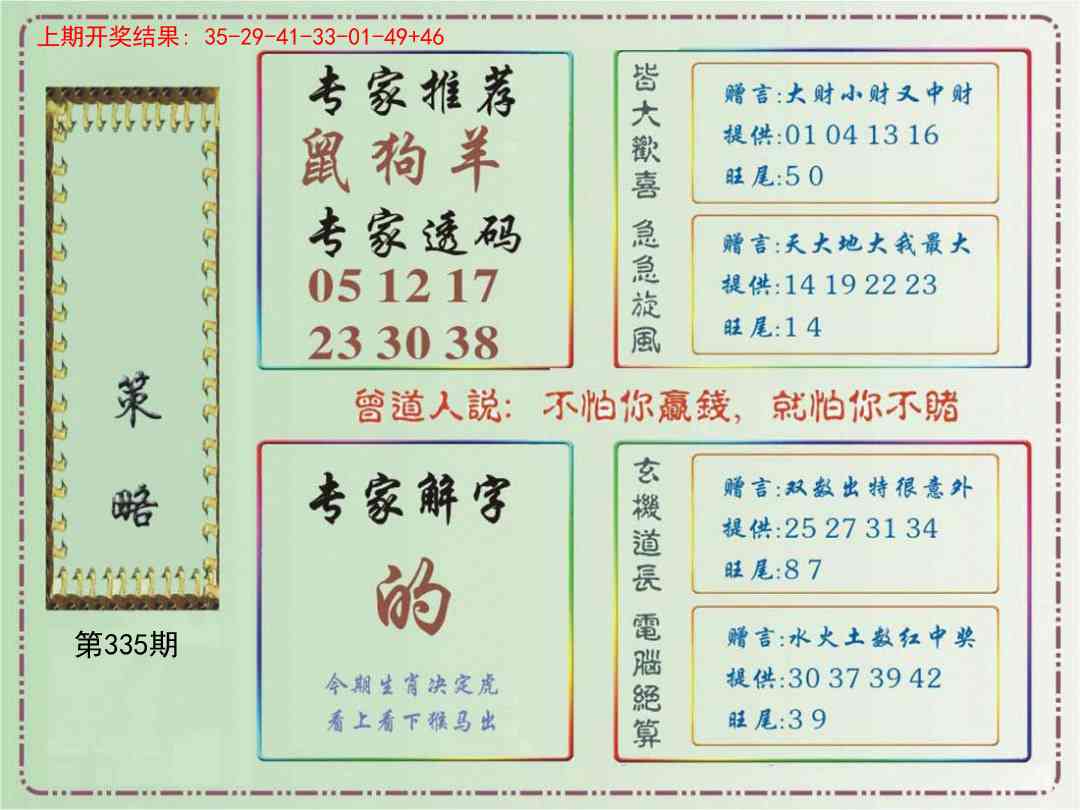 上期开奖结果: 35-29-41-33-01-49+46
策略
第335期
专家推荐
鼠狗羊
专家透码
05 12 17
23 30 38
皆大歡喜
赠言:大财小财又中财
提供:01 04 13 16
旺尾:5 0
急急旋风
赠言:天大地大我最大
提供:14 19 22 23
旺尾:1 4
曾道人説: 不怕你贏錢, 就怕你不賭
专家解字
的
今期生肖决定虎
看上看下猴马出
玄機道長
赠言:双数出特很意外
提供:25 27 31 34
旺尾:8 7
電腦絕算
赠言:水火土数红中奖
提供:30 37 39 42
旺尾:3 9